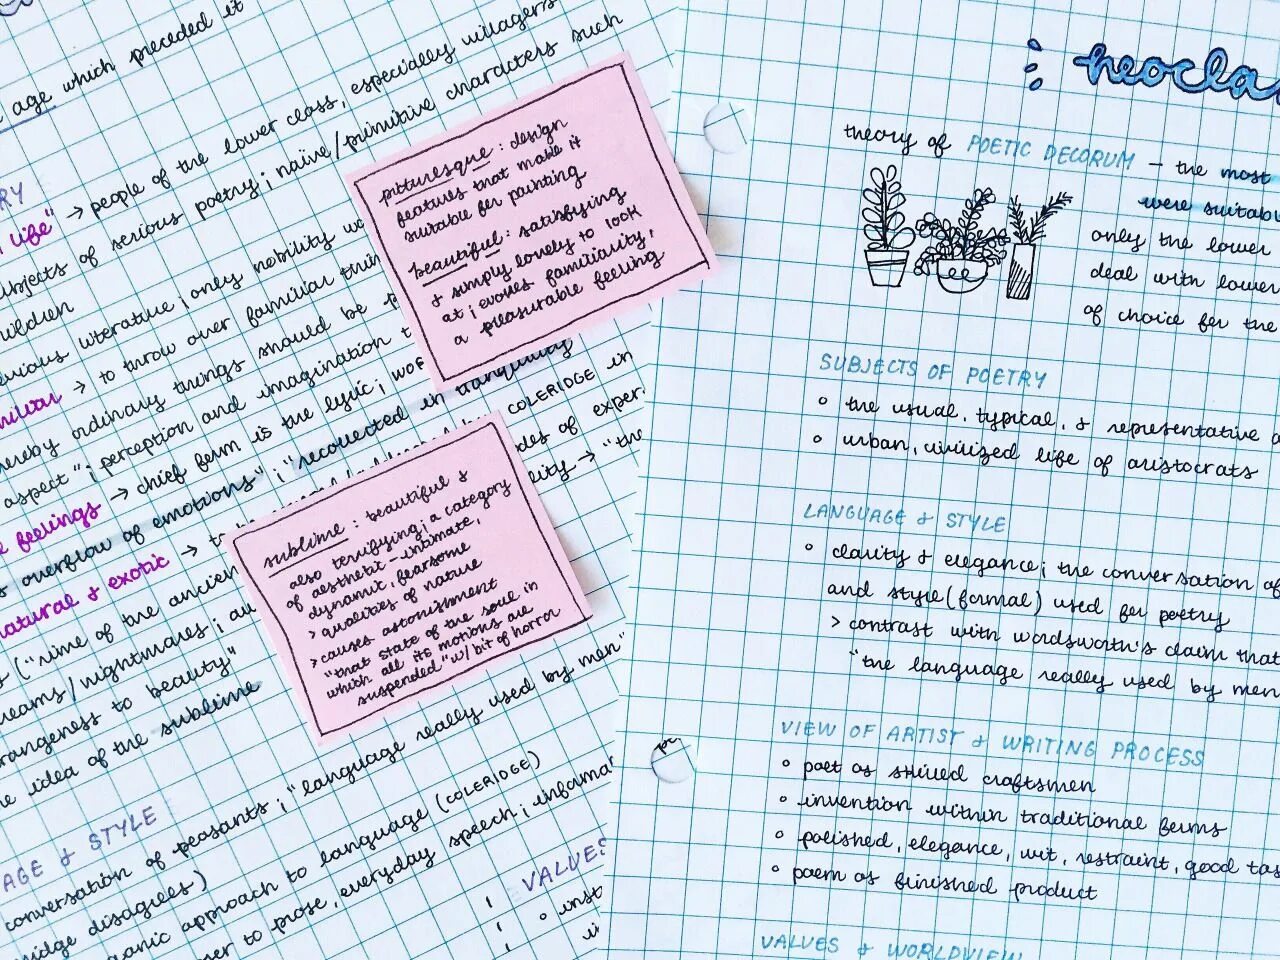 age which preceded it
RY
life" → people of the lower class, especially villagers
subjects of serious poetry; naive/primitive characters such
children
serious literature; only nobility wo
→ to throw over familiar thin
whereby ordinary things should be p
aspect"; perception and imagination t
feelings → chief form is the lyric; WOR
overflow of emotions"; "recollected in tranquility
COLERIDGE in
des of exper
natural & exotic → t
ility → "the
("rime of the ancien
dreams/nightmares; au
strangeness to beauty"
idea of the sublime
AGE & STYLE
conversation of peasants; "language really used by men"
ridge disagrees)
organic approach to language (COLERIDGE)
to prose, everyday speech; informa
VALUES
inst
picturesque: design
features that make it
suitable for painting
beautiful: satisfying
& simply lovely to look
at; evokes familiarity,
a pleasurable feeling
sublime: beautiful &
also terrifying; a category
of aesthetic - intimate,
dynamic, fearsome
> qualities of nature
> causes astonishment
"that state of the soul in
which all its motions are
suspended" w/ bit of horror
neocla
theory of POETIC DECORUM – the most
were suitabl
only the lower
deal with lower
of choice for the
SUBJECTS OF POETRY
◦ the usual, typical, & representative a
◦ urban, civilized life of aristocrats
LANGUAGE & STYLE
◦ clarity & elegance; the conversation of
and style (formal) used for poetry
> contrast with wordsworth's claim that
"the language really used by men
VIEW OF ARTIST & WRITING PROCESS
◦ poet as skilled craftsmen
◦ invention within traditional forms
◦ polished, elegance, wit, restraint, good tas
◦ poem as finished product
VALUES & WORLDVIEW